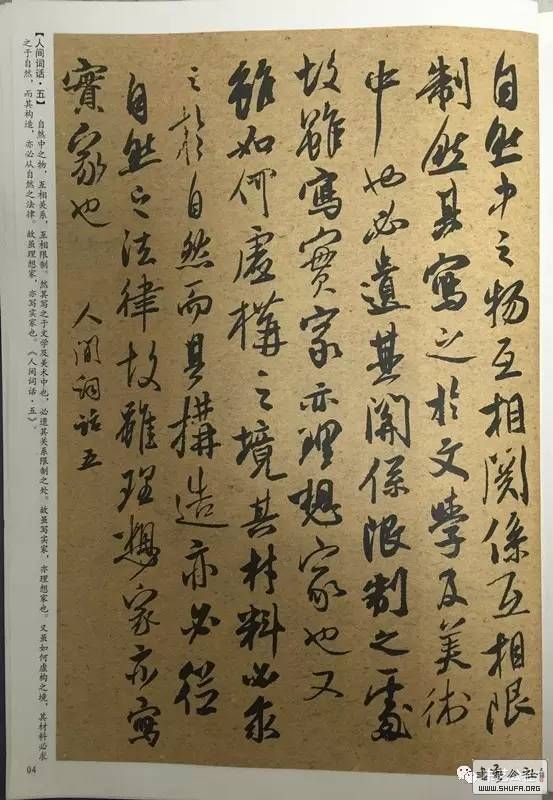 自然中之物互相関係互相限
制然其寫之於文學及美術
中也必遺其関係限制之處
故雖寫實家亦理想家也又
雖如何虛構之境其材料必求
之於自然而其構造亦必從
自然之法律故雖理想家亦寫
實家也
人间词话五
【人间词话·五】 自然中之物，互相关系，互相限制。然其写之于文学及美术中也，必遗其关系限制之处。故虽写实家，亦理想家也。又虽如何虚构之境，其材料必求
之于自然，而其构造，亦必从自然之法律。故虽理想家，亦写实家也。《人间词话·五》。
04
WWW.SHUFA.ORG